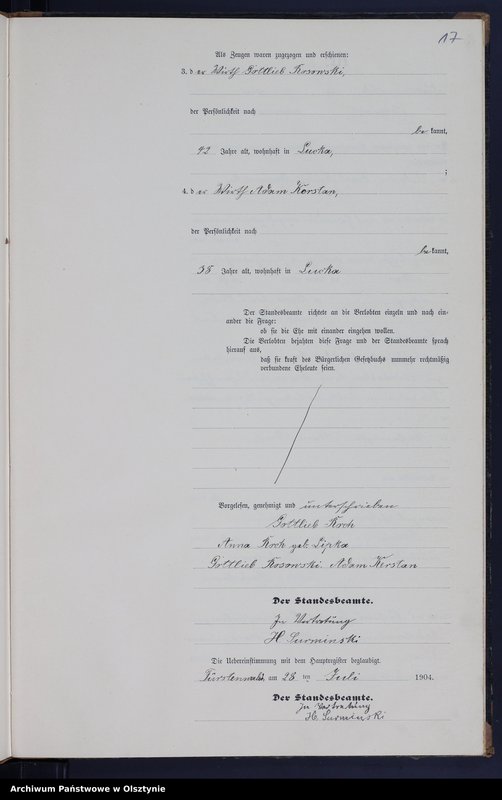 17
Als Zeugen waren zugezogen und erschienen:
3. der Wirth Gottlieb Kosowski,
der Persönlichkeit nach
bekannt,
42 Jahre alt, wohnhaft in Lucka,
;
4. der Wirth Adam Kerstan,
der Persönlichkeit nach
bekannt,
35 Jahre alt, wohnhaft in Lucka
Der Standesbeamte richtete an die Verlobten einzeln und nach ein-
ander die Frage:
ob sie die Ehe mit einander eingehen wollen.
Die Verlobten bejahten diese Frage und der Standesbeamte sprach
hierauf aus,
daß sie kraft des Bürgerlichen Gesetzbuchs nunmehr rechtmäßig
verbundene Eheleute seien.
Vorgelesen, genehmigt und unterschrieben
Gottlieb Kroh
Anna Kroh geb. Lipka
Gottlieb Kosowski. Adam Kerstan
Der Standesbeamte.
In Vertretung
H Surminski
Die Uebereinstimmung mit dem Hauptregister beglaubigt.
Fürstenwalde, am 28. ten Juli 1904.
Der Standesbeamte.
In Vertretung
H. Surminski
Archiwum Państwowe w Olsztynie